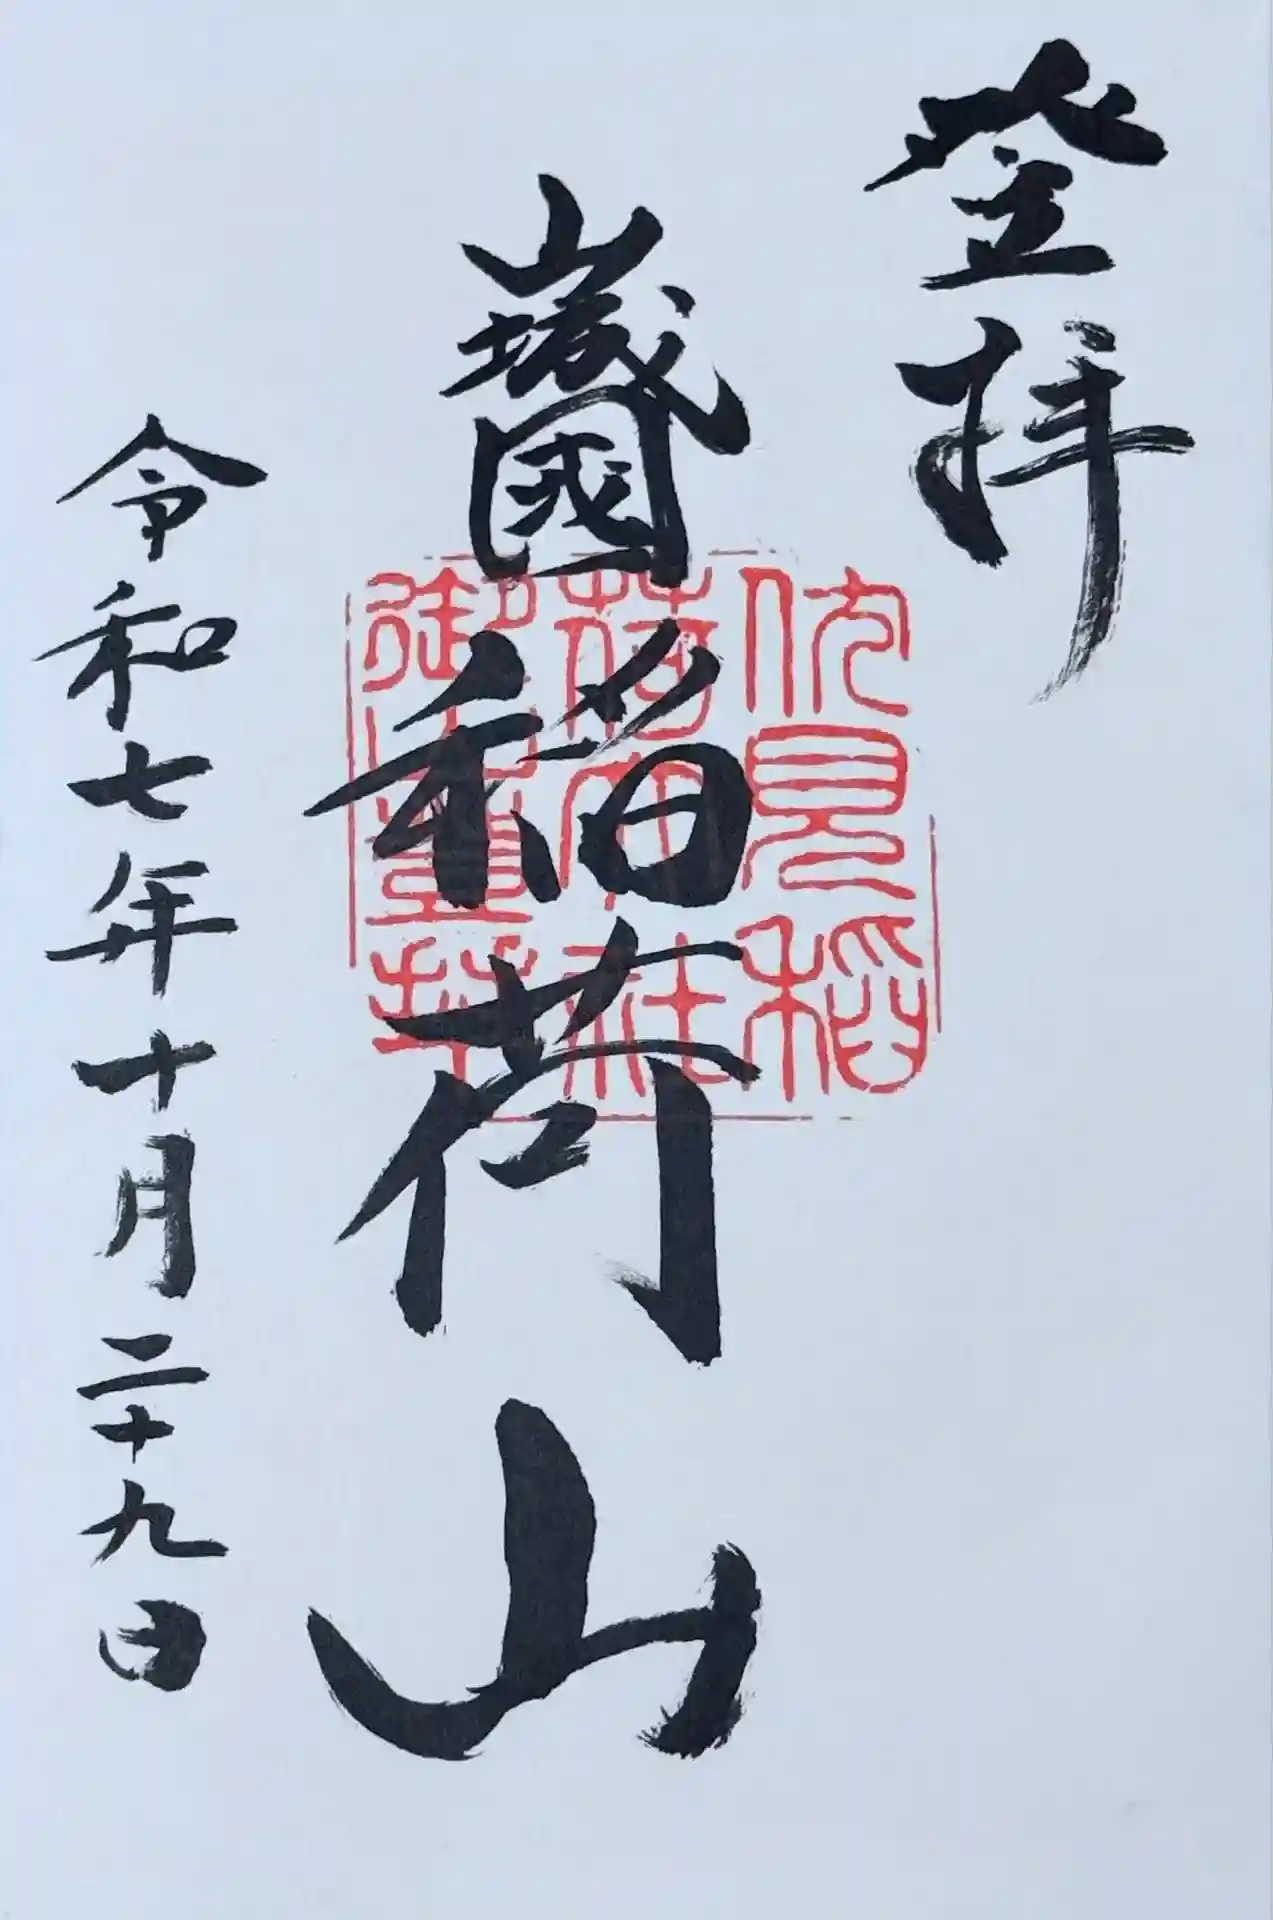 登拝
山城國
稲荷山
令和七年十月二十九日
伏見稲
荷大社